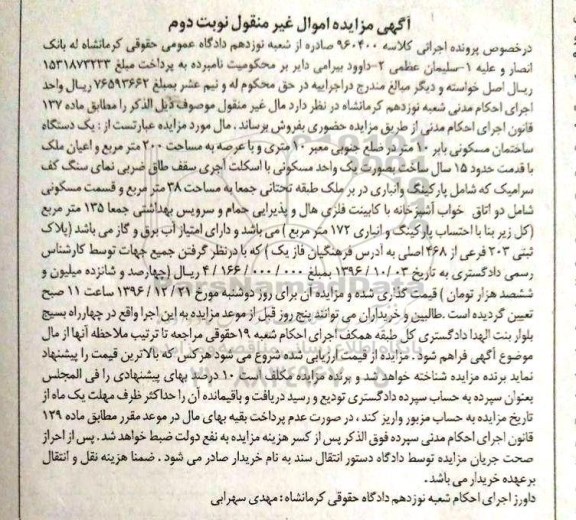 آگهی مزایده اموال غیر منقول نوبت دوم
درخصوص پرونده اجرائی کلاسه ۹۶۰۴۰۰ صادره از شعبه نوزدهم دادگاه عمومی حقوقی کرمانشاه له بانک
انصار و علیه ۱-سلیمان عظمی ۲-داوود بیرامی دایر بر محکومیت نامبرده به پرداخت مبلغ ۱۵۳۱۸۷۳۲۲۳
ریال اصل خواسته و دیگر مبالغ مندرج دراجراییه در حق محکوم له و نیم عشر بمبلغ ۷۶۵۹۳۶۶۲ ریال واحد
اجرای احکام مدنی شعبه نوزدهم کرمانشاه در نظر دارد مال غیر منقول موصوف ذیل الذکر را مطابق ماده ۱۳۷
قانون اجرای احکام مدنی از طریق مزایده حضوری بفروش برساند . مال مورد مزایده عبارتست از : یک دستگاه
ساختمان مسکونی بابر ۱۰ متر در ضلع جنوبی معبر ۱۰ متری و با عرصه به مساحت ۲۰۰ متر مربع و اعیان ملک
با قدمت حدود ۱۵ سال ساخت بصورت یک واحد مسکونی با اسکلت آجری سقف طاق ضربی نمای سنگ کف
سرامیک که شامل پارکینگ وانباری در بر ملک طبقه تحتانی جمعا به مساحت ۳۸ متر مربع و قسمت مسکونی
شامل دو اتاق خواب آشپزخانه با کابینت فلزی هال و پذیرایی حمام و سرویس بهداشتی جمعا ۱۳۵ متر مربع
(کل زیر بنا با احتساب پارکینگ و انباری ۱۷۲ متر مربع ) می باشد و دارای امتیاز آب برق و گاز می باشد (پلاک
ثبتی ۲۰۳ فرعی از ۴۶۸ اصلی به آدرس فرهنگیان فاز یک ) که با درنظر گرفتن جمیع جهات توسط کارشناس
رسمی دادگستری به تاریخ ۰۳ / ۱۰ / ۱۳۹۶ بمبلغ ۰۰۰ / ۰۰۰ / ۱۶۶ / ۴ ریال (چهارصد و شانزده میلیون و
ششصد هزار تومان ) قیمت گذاری شده و مزایده آن برای روز دوشنبه مورخ ۲۱ / ۱۲ / ۱۳۹۶ ساعت ۱۱ صبح
تعیین گردیده است .طالبین و خریداران می توانند پنج روز قبل از موعد مزایده به این اجرا واقع در چهارراه بسیج
بلوار بنت الهدا دادگستری کل طبقه همکف اجرای احکام شعبه ۱۹حقوقی مراجعه تا ترتیب ملاحظه آنها از مال
موضوع آگهی فراهم شود . مزایده از قیمت ارزیابی شده شروع می شود هرکس که بالاترین قیمت را پیشنهاد
نماید برنده مزایده شناخته خواهد شد و برنده مزایده مکلف است ۱۰ درصد بهای پیشنهادی را فی المجلس
بعنوان سپرده به حساب سپرده دادگستری تودیع و رسید دریافت و باقیمانده آن را حداکثر ظرف مهلت یک ماه از
تاریخ مزایده به حساب مزبور واریز کند ، در صورت عدم پرداخت بقیه بهای مال در موعد مقرر مطابق ماده ۱۲۹
قانون اجرای احکام مدنی سپرده فوق الذکر پس از کسر هزینه مزایده به نفع دولت ضبط خواهد شد . پس از احراز
صحت جریان مزایده توسط دادگاه دستور انتقال سند به نام خریدار صادر می شود . ضمنا هزینه نقل و انتقال
برعهده خریدار می باشد .
داورز اجرای احکام شعبه نوزدهم دادگاه حقوقی کرمانشاه : مهدی سهرابی